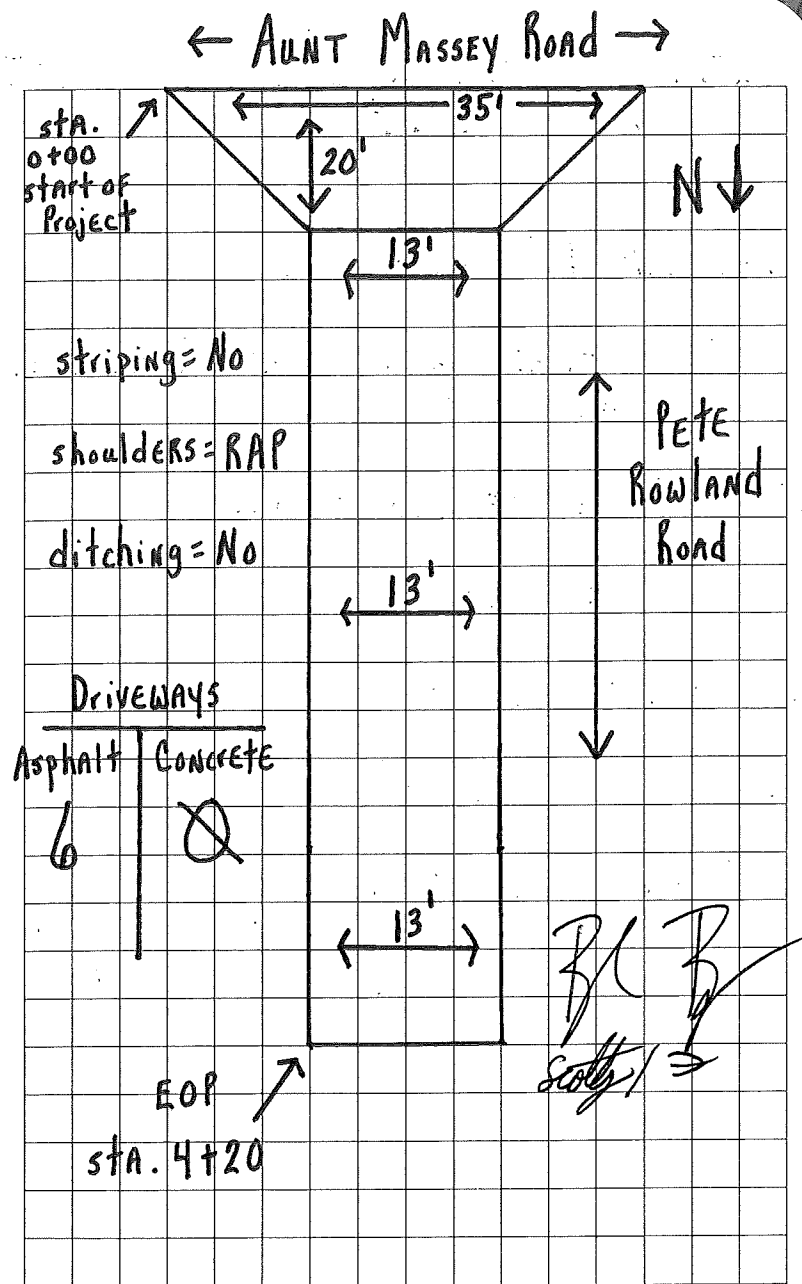 ← AUNT MASSEY ROAD →
35'
stA.
0+00
stARt of
Project
20'
N ↓
13'
striping = No
shouldERS = RAP
ditching = No
PEtE
RowlAND
RoAD
13'
DrivEWAYS
Asphalt | CONCREtE
6 | Ø
13'
EOP
stA. 4+20